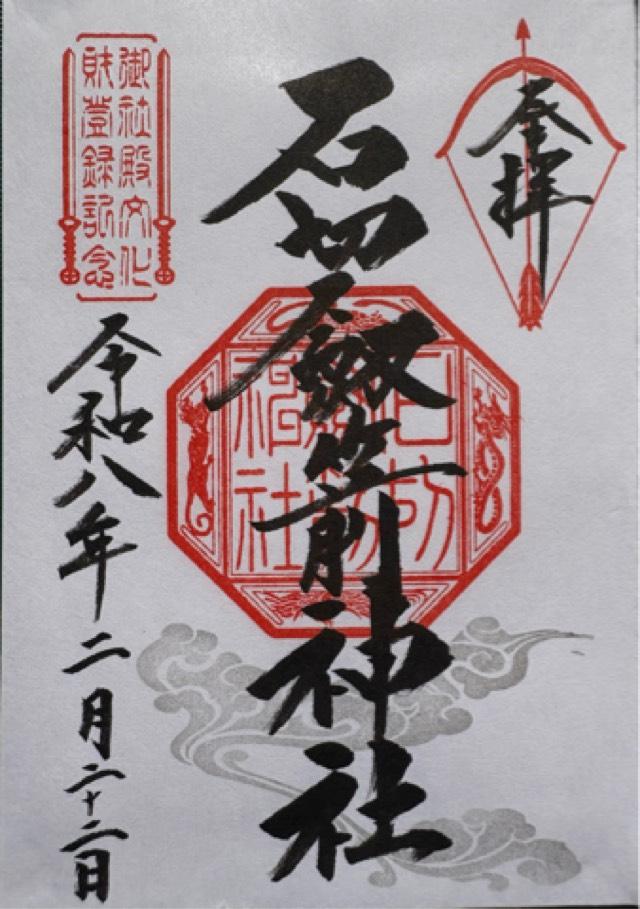 奉拝
石切劔箭神社
御社殿文化
財登録記念
令和八年二月二十二日